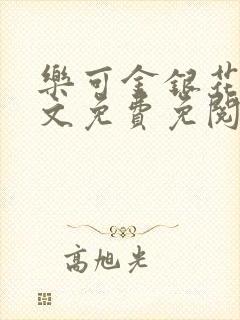 樂可金銀花
文免費免閱
高旭光